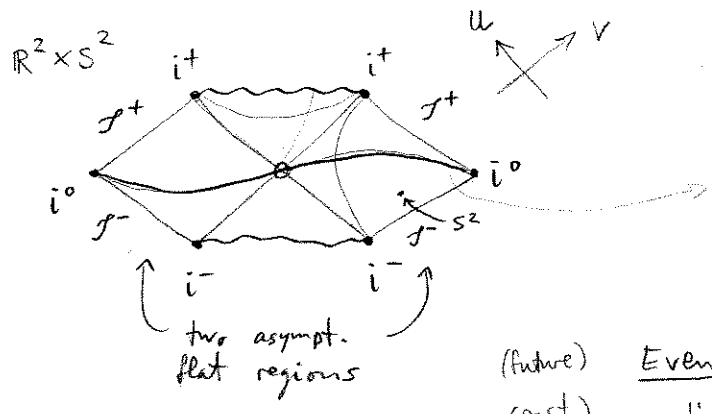 R² × S²
i⁺ i⁺ U V
𝓘⁺ 𝓘⁺
i⁰ i⁰
𝓘⁻ 𝓘⁻ S²
i⁻ i⁻
two asympt.
flat regions
(future) Even
(past) "